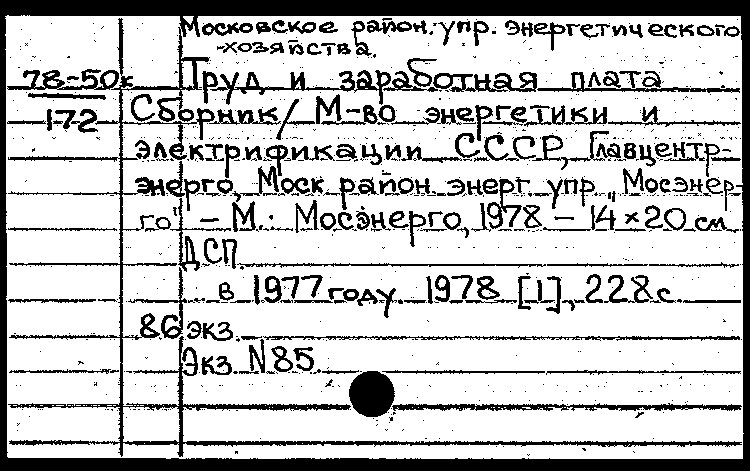 Московское район. упр. энергетического
-хозяйства.
78-50к Труд и заработная плата
172 Сборник/ М-во энергетики и
электрификации СССР, Главцентр-
энерго, Моск район. энерг упр "Мосэнер-
го" – М.: Мосэнерго, 1978 – 14×20 см
ДСП
в 1977 году 1978 [1], 228с
86 экз.
Экз N 85